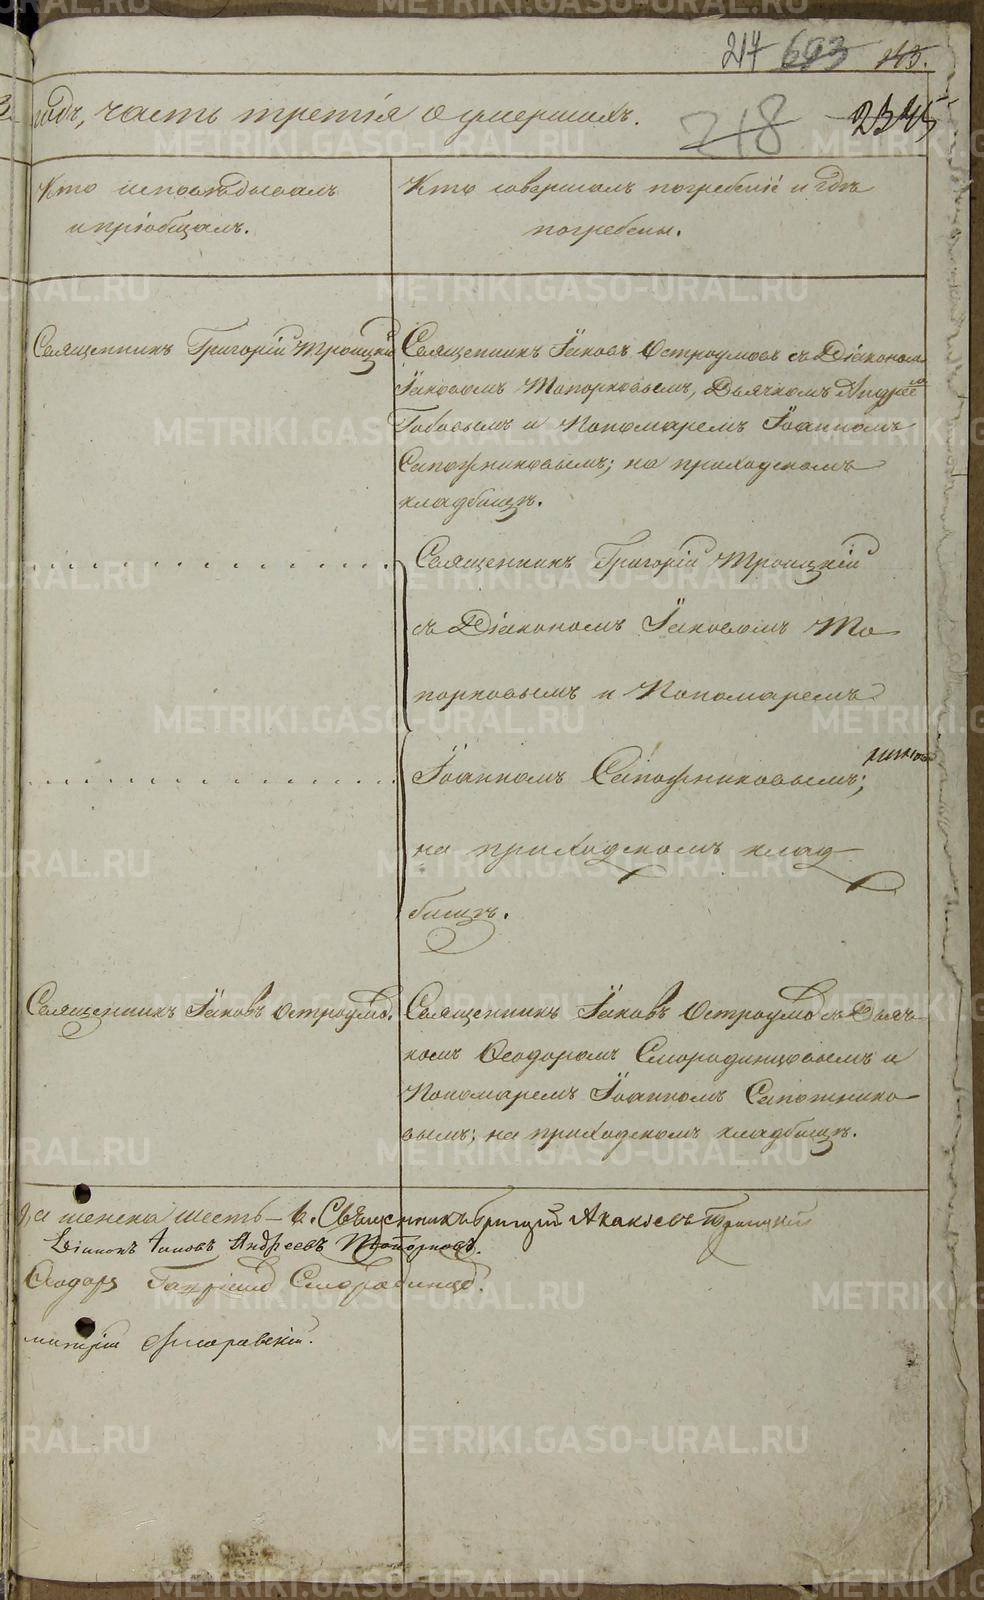 217 693 143.
годъ, часть третія о умершихъ.
218 2345
Кто исповѣдывалъ
и пріобщалъ.
Кто совершалъ погребеніе и гдѣ
погребены.
Священникъ Григорій Троицкій
Священникъ Іаковъ Остроумовъ съ Діакономъ
Іаковомъ Топорковымъ, Дьячкомъ Андрее
Бобовымъ и Пономаремъ Іоанномъ
Сапожниковымъ; на приходскомъ
кладбищѣ.
Священникъ Григорій Троицкій
съ Діакономъ Іаковомъ То
порковымъ и Пономаремъ
Іоанномъ Сапожниковымъ;
на приходскомъ клад
бищѣ.
Священникъ Іаковъ Остроумо.
Священникъ Іаковъ Остроумо съ Дьяч-
комъ Ѳеодоромъ Смородинцовымъ и
Пономаремъ Іоанномъ Сапожнико
вымъ; на приходскомъ кладбищѣ.
а женска шесть – 6. Священникъ Григорій Акакіевъ Троицкій
Діаконъ Іаковъ Андреевъ Топорковъ.
Ѳеодоръ Смородинцо.
METRIKI.GASO-URAL.RU